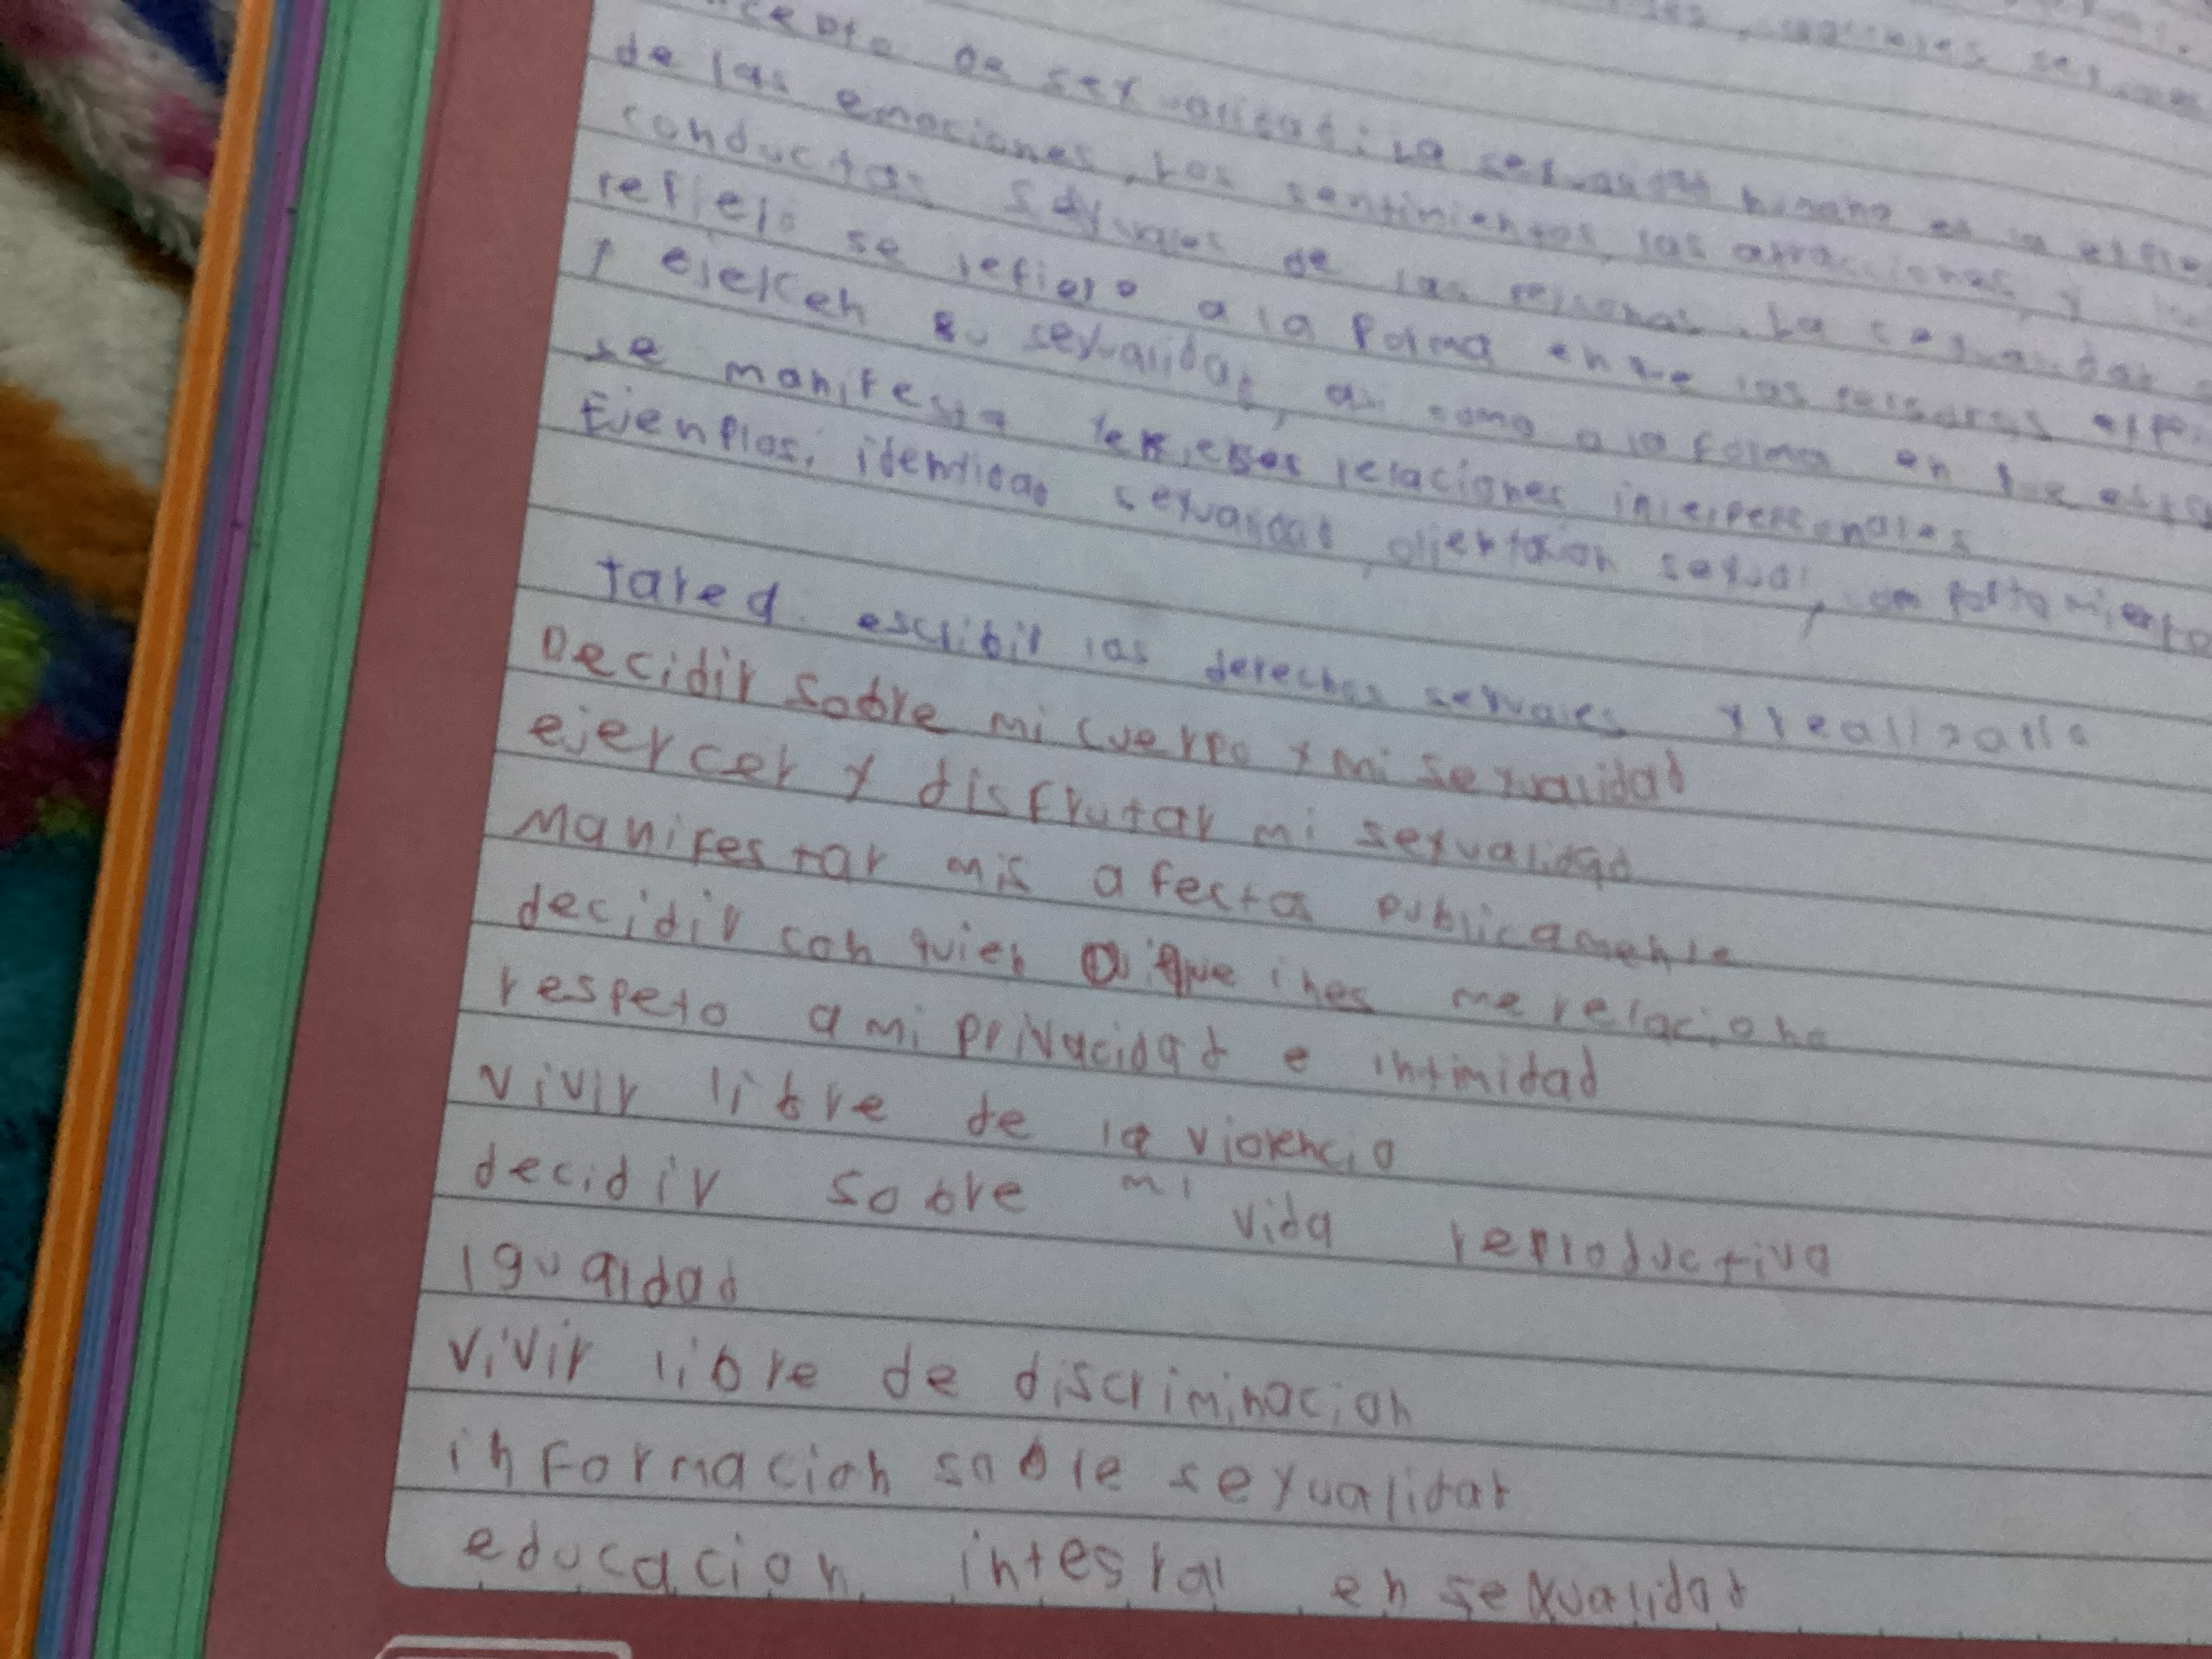 de sexualidad: La sexualidad humana es la
de las emociones, los sentimientos, las atracciones, y
conductas sexuales de las personas. La sexualidad
reflejo se refiere a la forma en que las personas
y ejercen su sexualidad, asi como a la forma en que
se manifesta relaciones interpersonales
Ejenplos, identidad sexualidad, orientacion sexual,
tarea escribir las derechos sexuales y realizarlo
Decidir sobre mi cuerpo y mi sexualidad
ejercer y disfrutar mi sexualidad
Manifestar mis afectos publicamente
decidir con quien me relaciono
respeto a mi privacidad e intimidad
vivir libre de la violencia
decidir sobre mi vida reproductiva
igualdad
vivir libre de discriminacion
informacion sobre sexualidad
educacion integral en sexualidad